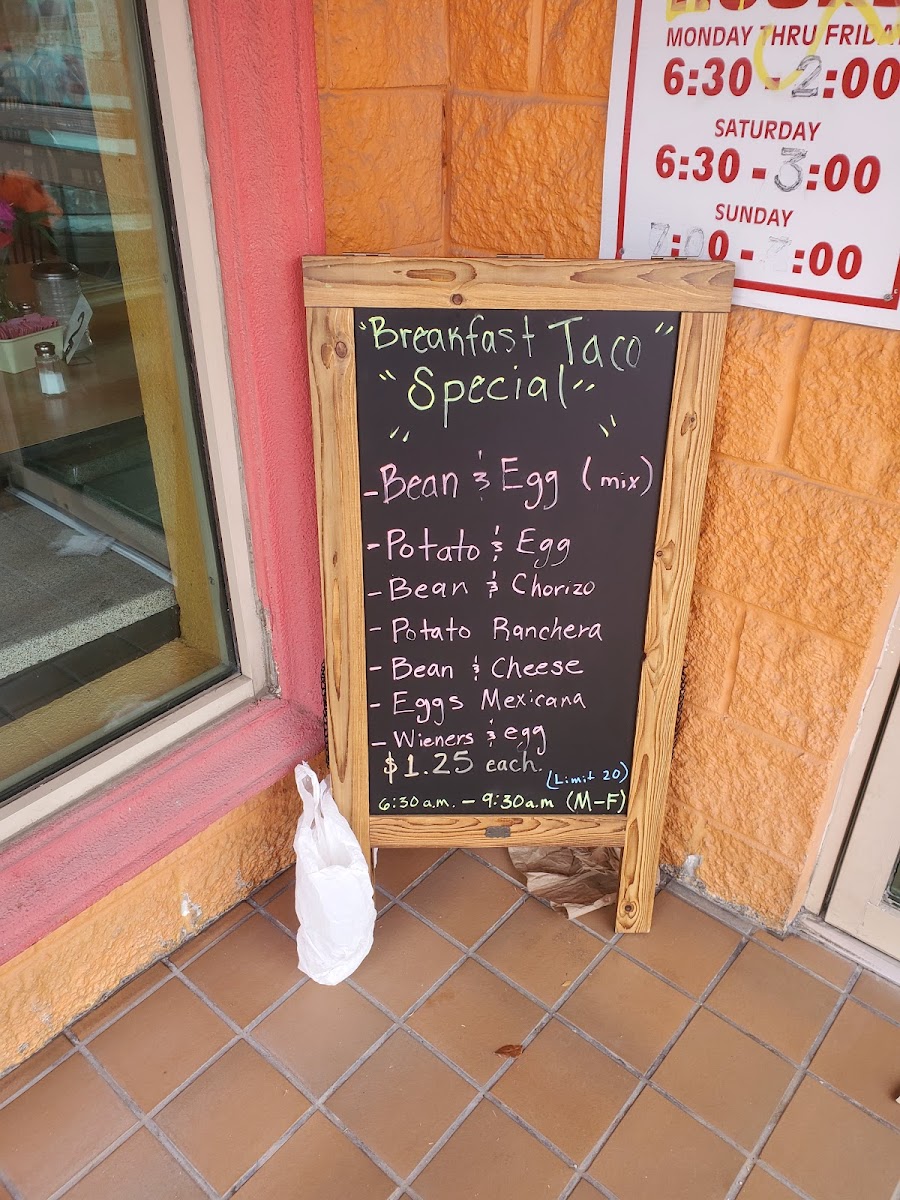 MONDAY THRU FRIDAY
6:30 - 2:00
SATURDAY
6:30 - 3:00
SUNDAY
7:00 - :00
"Breakfast Taco"
"Special"
-Bean & Egg (mix)
-Potato & Egg
-Bean & Chorizo
-Potato Ranchera
-Bean & Cheese
-Eggs Mexicana
-Wieners & egg
$1.25 each.
(Limit 20)
6:30 a.m. - 9:30a.m (M-F)